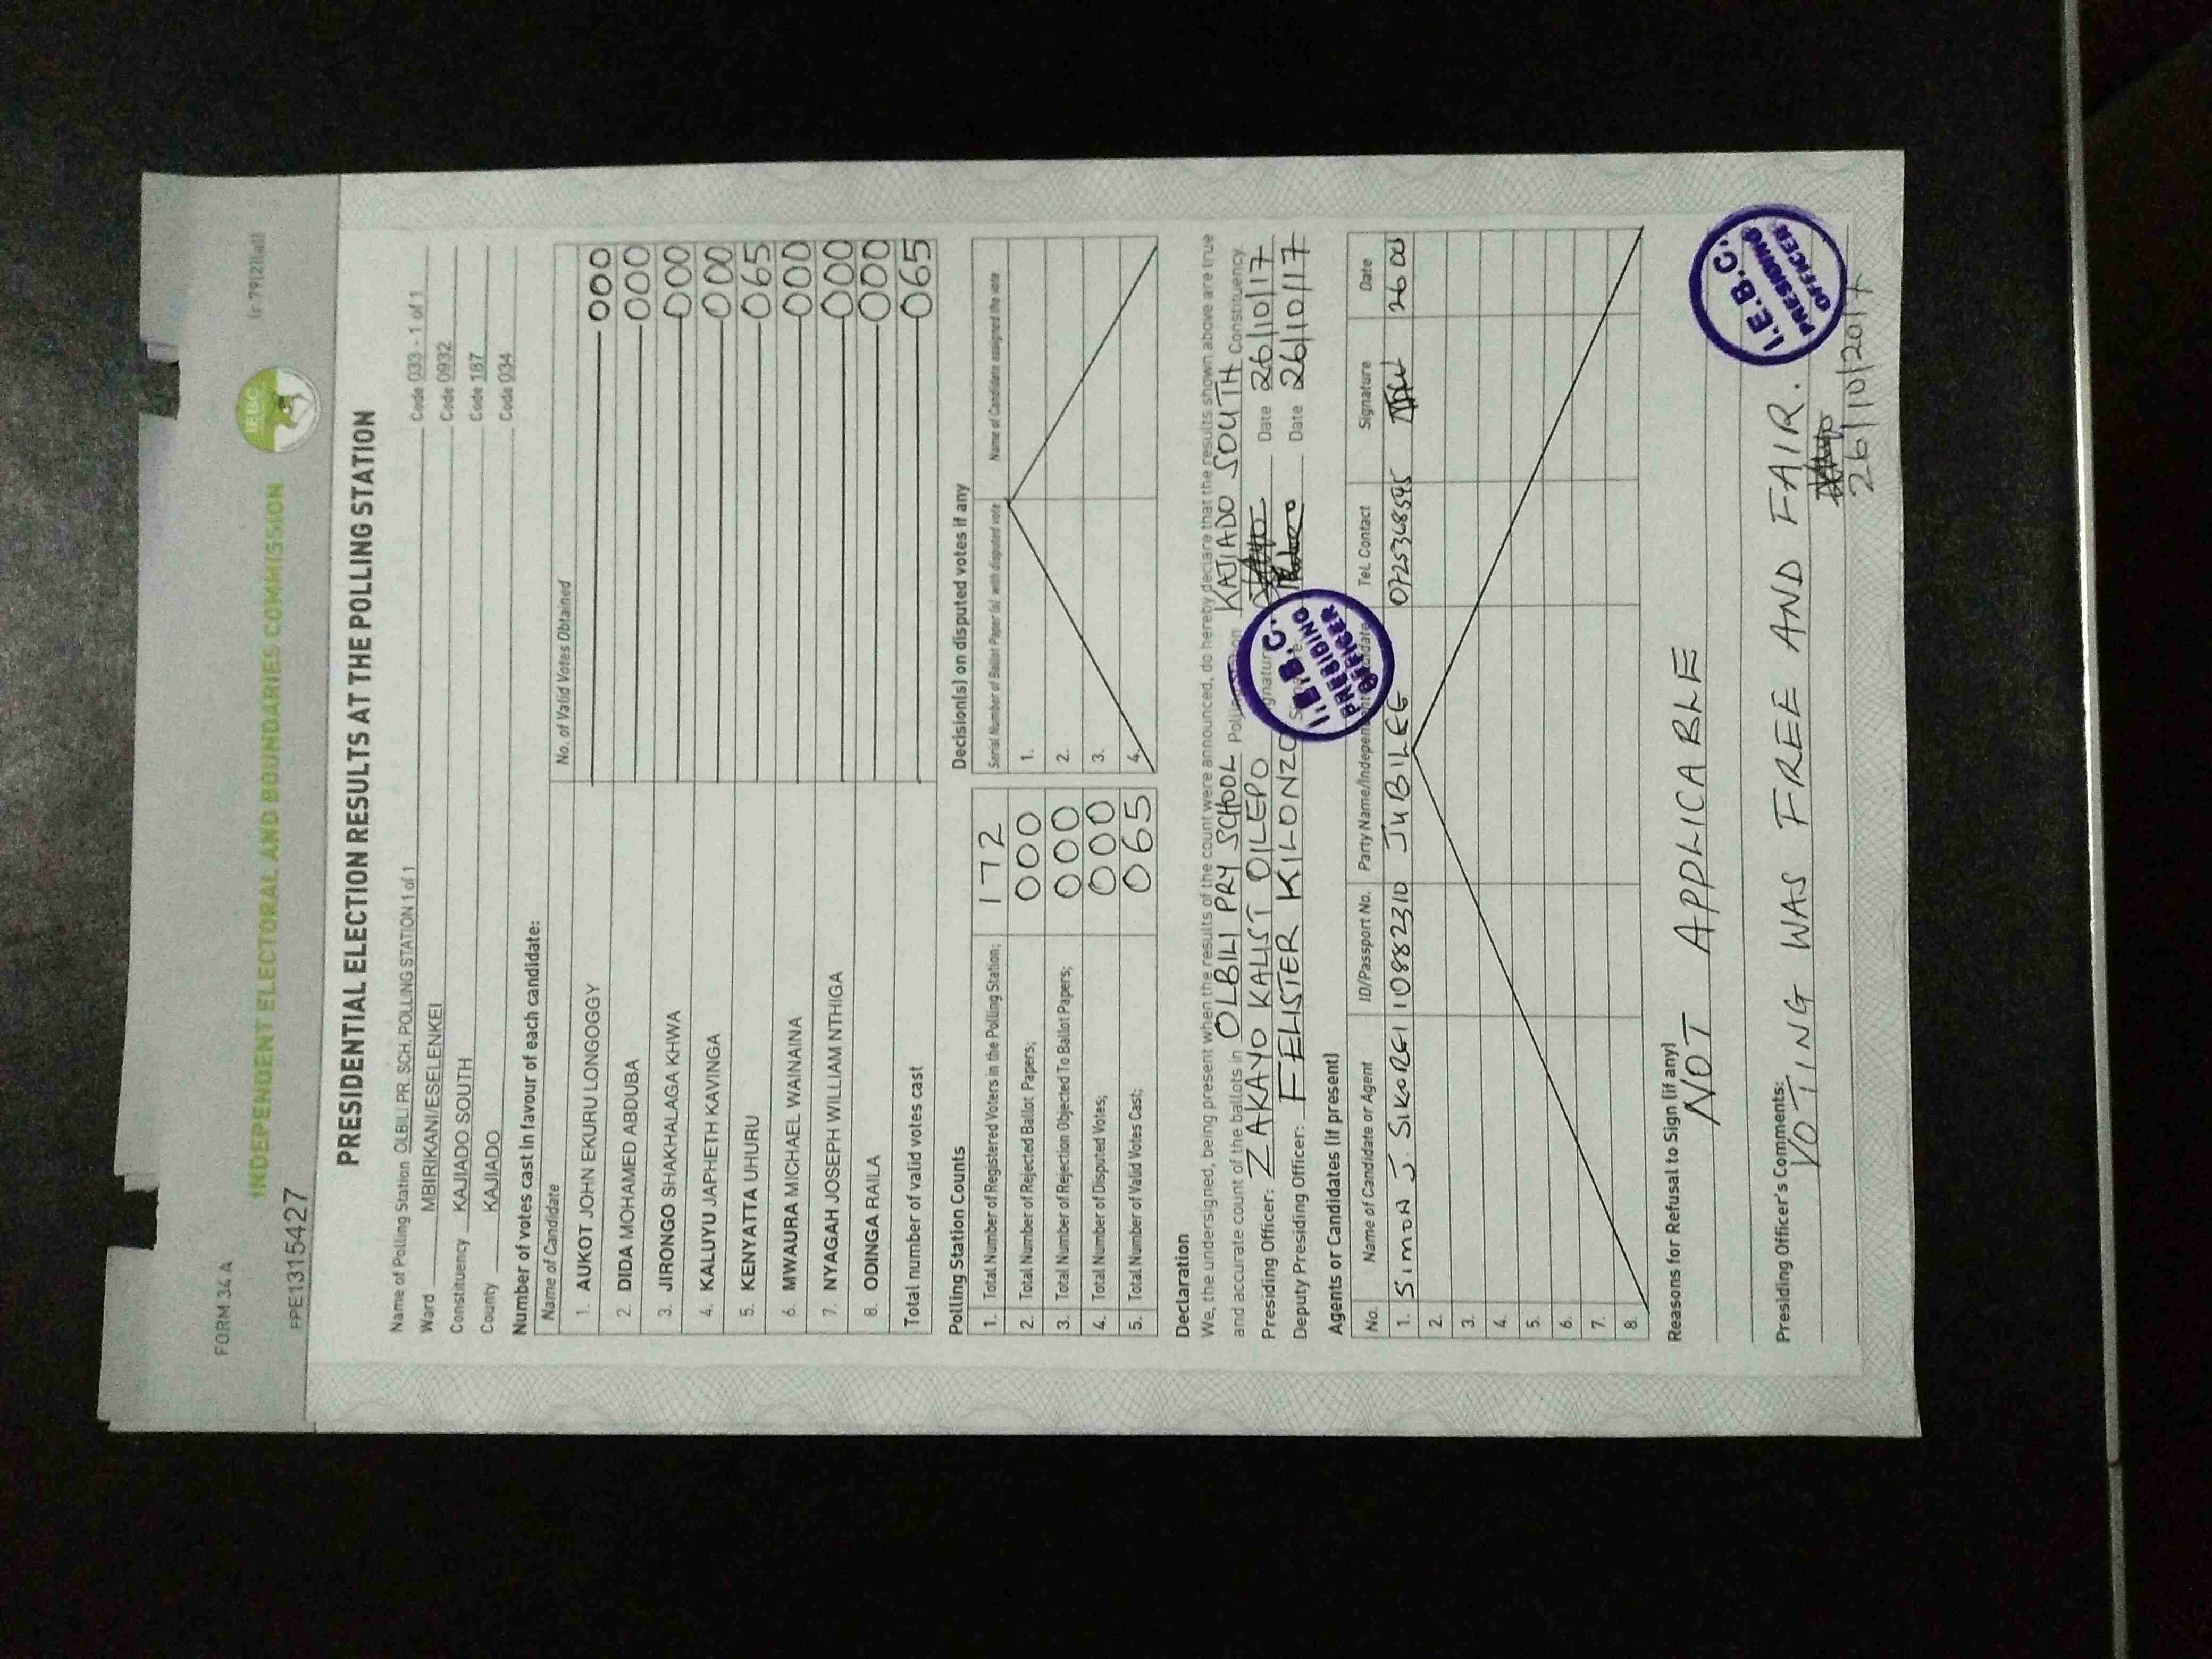 FORM 34 A
(r 79(2)(a))
IEBC
INDEPENDENT ELECTORAL AND BOUNDARIES COMMISSION
FPE13115427
PRESIDENTIAL ELECTION RESULTS AT THE POLLING STATION
Name of Polling Station OLBLI PR. SCH. POLLING STATION 1 of 1 Code 033 - 1 of 1
Ward MBIRIKANI/ESELENKEI Code 0932
Constituency KAJIADO SOUTH Code 187
County KAJIADO Code 034
Number of votes cast in favour of each candidate:
Name of Candidate No. of Valid Votes Obtained
1. AUKOT JOHN EKURU LONGOGGY 000
2. DIDA MOHAMED ABDUBA 000
3. JIRONGO SHAKHALAGA KHWA 000
4. KALUYU JAPHETH KAVINGA 000
5. KENYATTA UHURU 065
6. MWAURA MICHAEL WAINAINA 000
7. NYAGAH JOSEPH WILLIAM NTHIGA 000
8. ODINGA RAILA 000
Total number of valid votes cast 065
Polling Station Counts
1. Total Number of Registered Voters in the Polling Station; 172
2. Total Number of Rejected Ballot Papers; 000
3. Total Number of Rejection Objected To Ballot Papers; 000
4. Total Number of Disputed Votes; 000
5. Total Number of Valid Votes Cast; 065
Decision(s) on disputed votes if any
Serial Number of Ballot Paper (s) with disputed vote Name of Candidate assigned the vote
1.
2.
3.
4.
Declaration
We, the undersigned, being present when the results of the count were announced, do hereby declare that the results shown above are true
and accurate count of the ballots in OLBILI PRY SCHOOL Polling KAJIADO SOUTH Constituency.
Presiding Officer: ZAKAYO KALIST OILEPO Date 26/10/17
Deputy Presiding Officer: FELISTER KILONZO Date 26/10/17
I.E.B.C. PRESIDING OFFICER
Agents or Candidates (if present)
No. Name of Candidate or Agent ID/Passport No. Party Name/Independent Candidate Tel. Contact Signature Date
1. SIMON J. SIKOREI 10882310 JUBILEE 0725368595
2.
3.
4.
5.
6.
7.
8.
Reasons for Refusal to Sign (if any)
NOT APPLICABLE
Presiding Officer's Comments:
VOTING WAS FREE AND FAIR.
26/10/2017
I.E.B.C. PRESIDING OFFICER